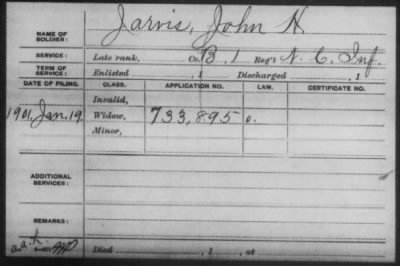 NAME OF SOLDIER: Jarvis, John H.
SERVICE: Late rank, Co. B, 1 Reg't N. C. Inf.
TERM OF SERVICE: Enlisted , 1 Discharged , 1
DATE OF FILING. CLASS. APPLICATION NO. LAW. CERTIFICATE NO.
Invalid,
1901, Jan. 19. Widow, 733,895 o.
Minor,
ADDITIONAL SERVICES:
REMARKS:
Died , 1 , at